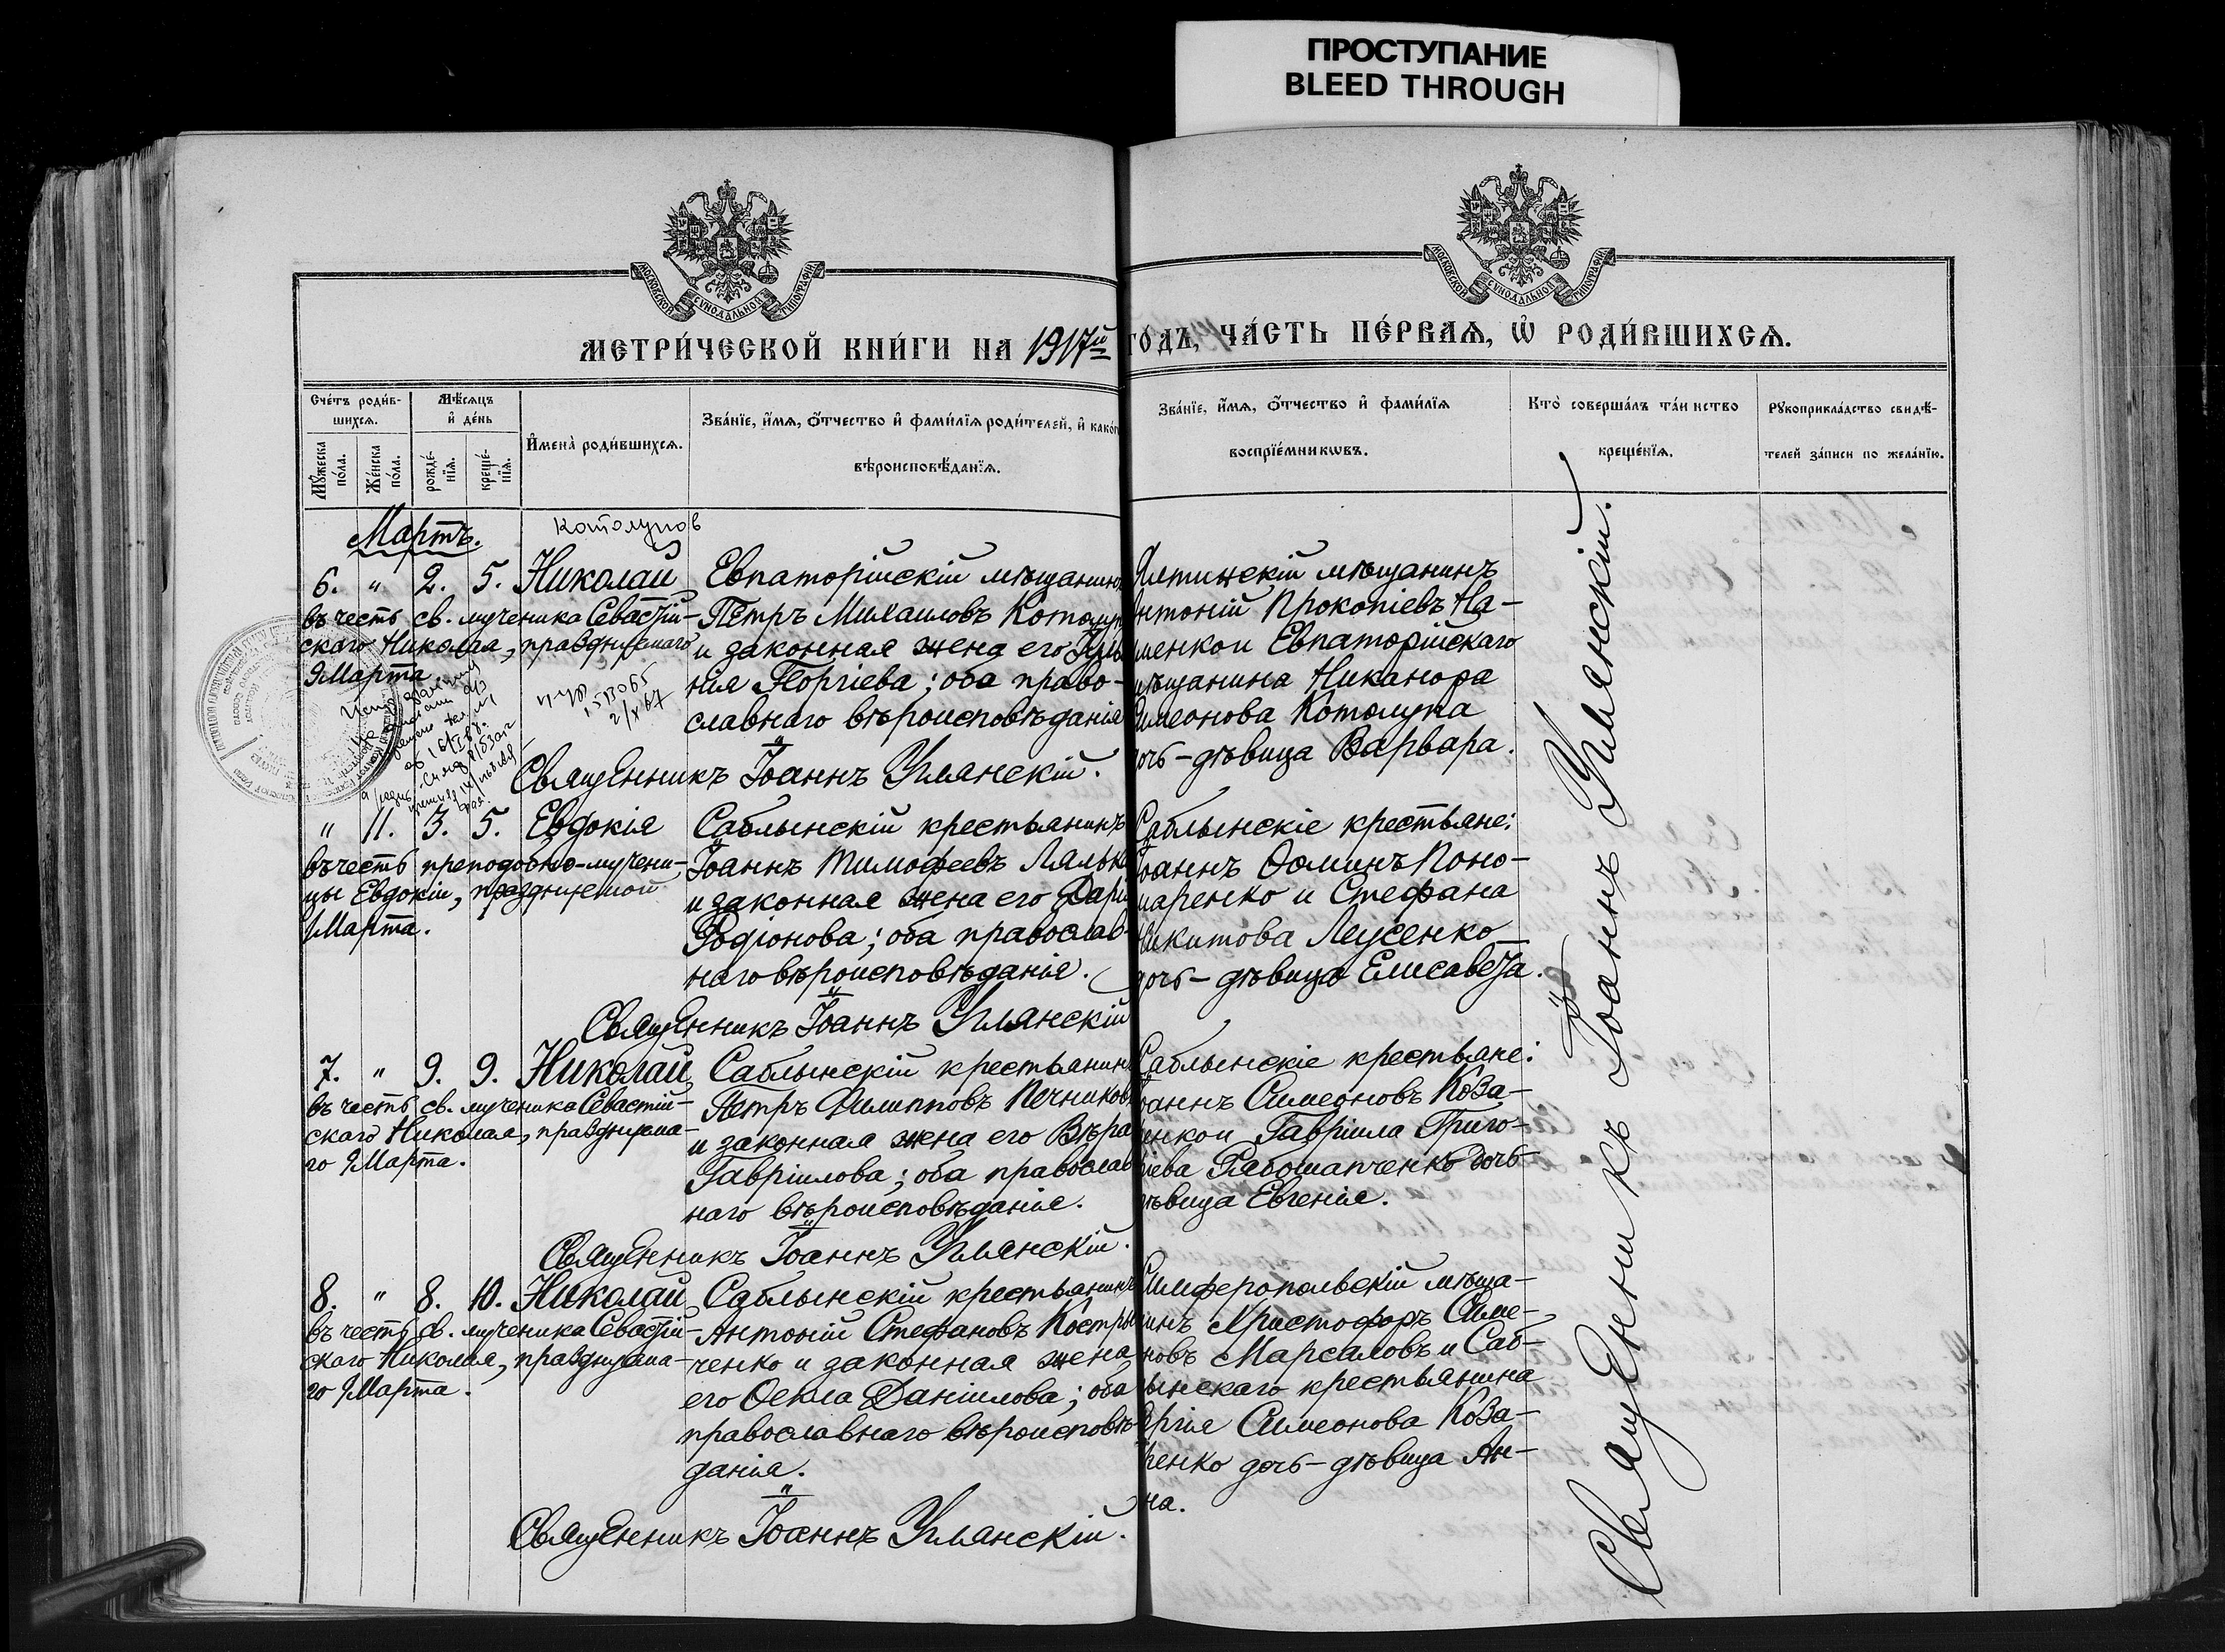 ПРОСТУПАНИЕ
BLEED THROUGH
МОСКОВСКОЙ СѴНОДАЛЬНОЙ ТИПОГРАФІИ
МОСКОВСКОЙ СѴНОДАЛЬНОЙ ТИПОГРАФІИ
МЕТРИ́ЧЕСКОЙ КНИ́ГИ НА 1917й
ГО́ДЪ, ЧА́СТЬ ПЕ́РВАѦ, Ѿ РОДИ́ВШИХСѦ.
Сче́тъ роди́в-
шихсѧ.
Мѣ́сѧцъ
и҆ де́нь
Мꙋ́жеска
по́ла.
Же́нска
по́ла.
рожде́-
нїѧ.
креще́-
нїѧ.
И҆мена̀ роди́вшихсѧ.
Зва́нїе, и҆́мѧ, ѻ҆́тчество и҆ фами́лїѧ роди́телей, и҆ како́г
вѣроисповѣ́данїѧ.
Зва́нїе, и҆́мѧ, ѻ҆́тчество и҆ фами́лїѧ
воспрїе́мникѡвъ.
Кто̀ соверша́лъ та́инство
креще́нїѧ.
Рꙋкоприкла́дство свидѣ́-
телей за́писи по жела́нїю.
Мартъ.
Котолупов
6. " 2. 5. Николай
въ честь св. мученика Севастій-
скаго Николая, празднуемаго
9 Марта.
Евпаторійскій мѣщанинъ
Петръ Михаиловъ Котолуп
и законная жена его
нія Георгіева; оба право-
славнаго вѣроисповѣданія
Священникъ Іоаннъ Углянскій.
Ялтинскій мѣщанинъ
Антоній Прокопіевъ На-
менко и Евпаторійскаго
мѣщанина Никанора
Симеонова Котолупа
дочь-дѣвица Варвара.
" 11. 3. 5. Евдокія
въ честь преподобно-мучени-
цы Евдокіи, празднуемой
1 Марта.
Саблынскій крестьянинъ
Іоаннъ Тимофеевъ Лялько
и законная жена его Дарі
Родіонова; оба православ-
наго вѣроисповѣданія.
Священникъ Іоаннъ Углянскій
Саблынскіе крестьяне:
Іоаннъ Ѳоминъ Поно-
маренко и Стефана
Никитова Леусенко
дочь-дѣвица Елисавета.
7. " 9. 9. Николай
въ честь св. мученика Севастій-
скаго Николая, празднуема-
го 9 Марта.
Саблынскій крестьянин
Петръ Филипповъ Печников
и законная жена его Вѣра
Гавріилова; оба православ
наго вѣроисповѣданія.
Священникъ Іоаннъ Углянскій.
Саблынскіе крестьяне:
Іоаннъ Симеоновъ Коза-
ченко и Гавріила Григо-
ріева Рябошапченко дочь-
дѣвица Евгенія.
8. " 8. 10. Николай
въ честь св. мученика Севастій-
скаго Николая, празднуема-
го 9 Марта.
Саблынскій крестьянинъ
Антоній Стефановъ Костры
ченко и законная жена
его Ѳекла Даніилова; оба
православнаго вѣроисповѣ-
данія.
Священникъ Іоаннъ Углянскій.
Симферопольскій мѣща-
нинъ Христофоръ Симе-
новъ Марсаловъ и Саб-
лынскаго крестьянина
Сергія Симеонова Коза-
ченко дочь-дѣвица Ан-
на.
Священникъ Іоаннъ Углянскій.